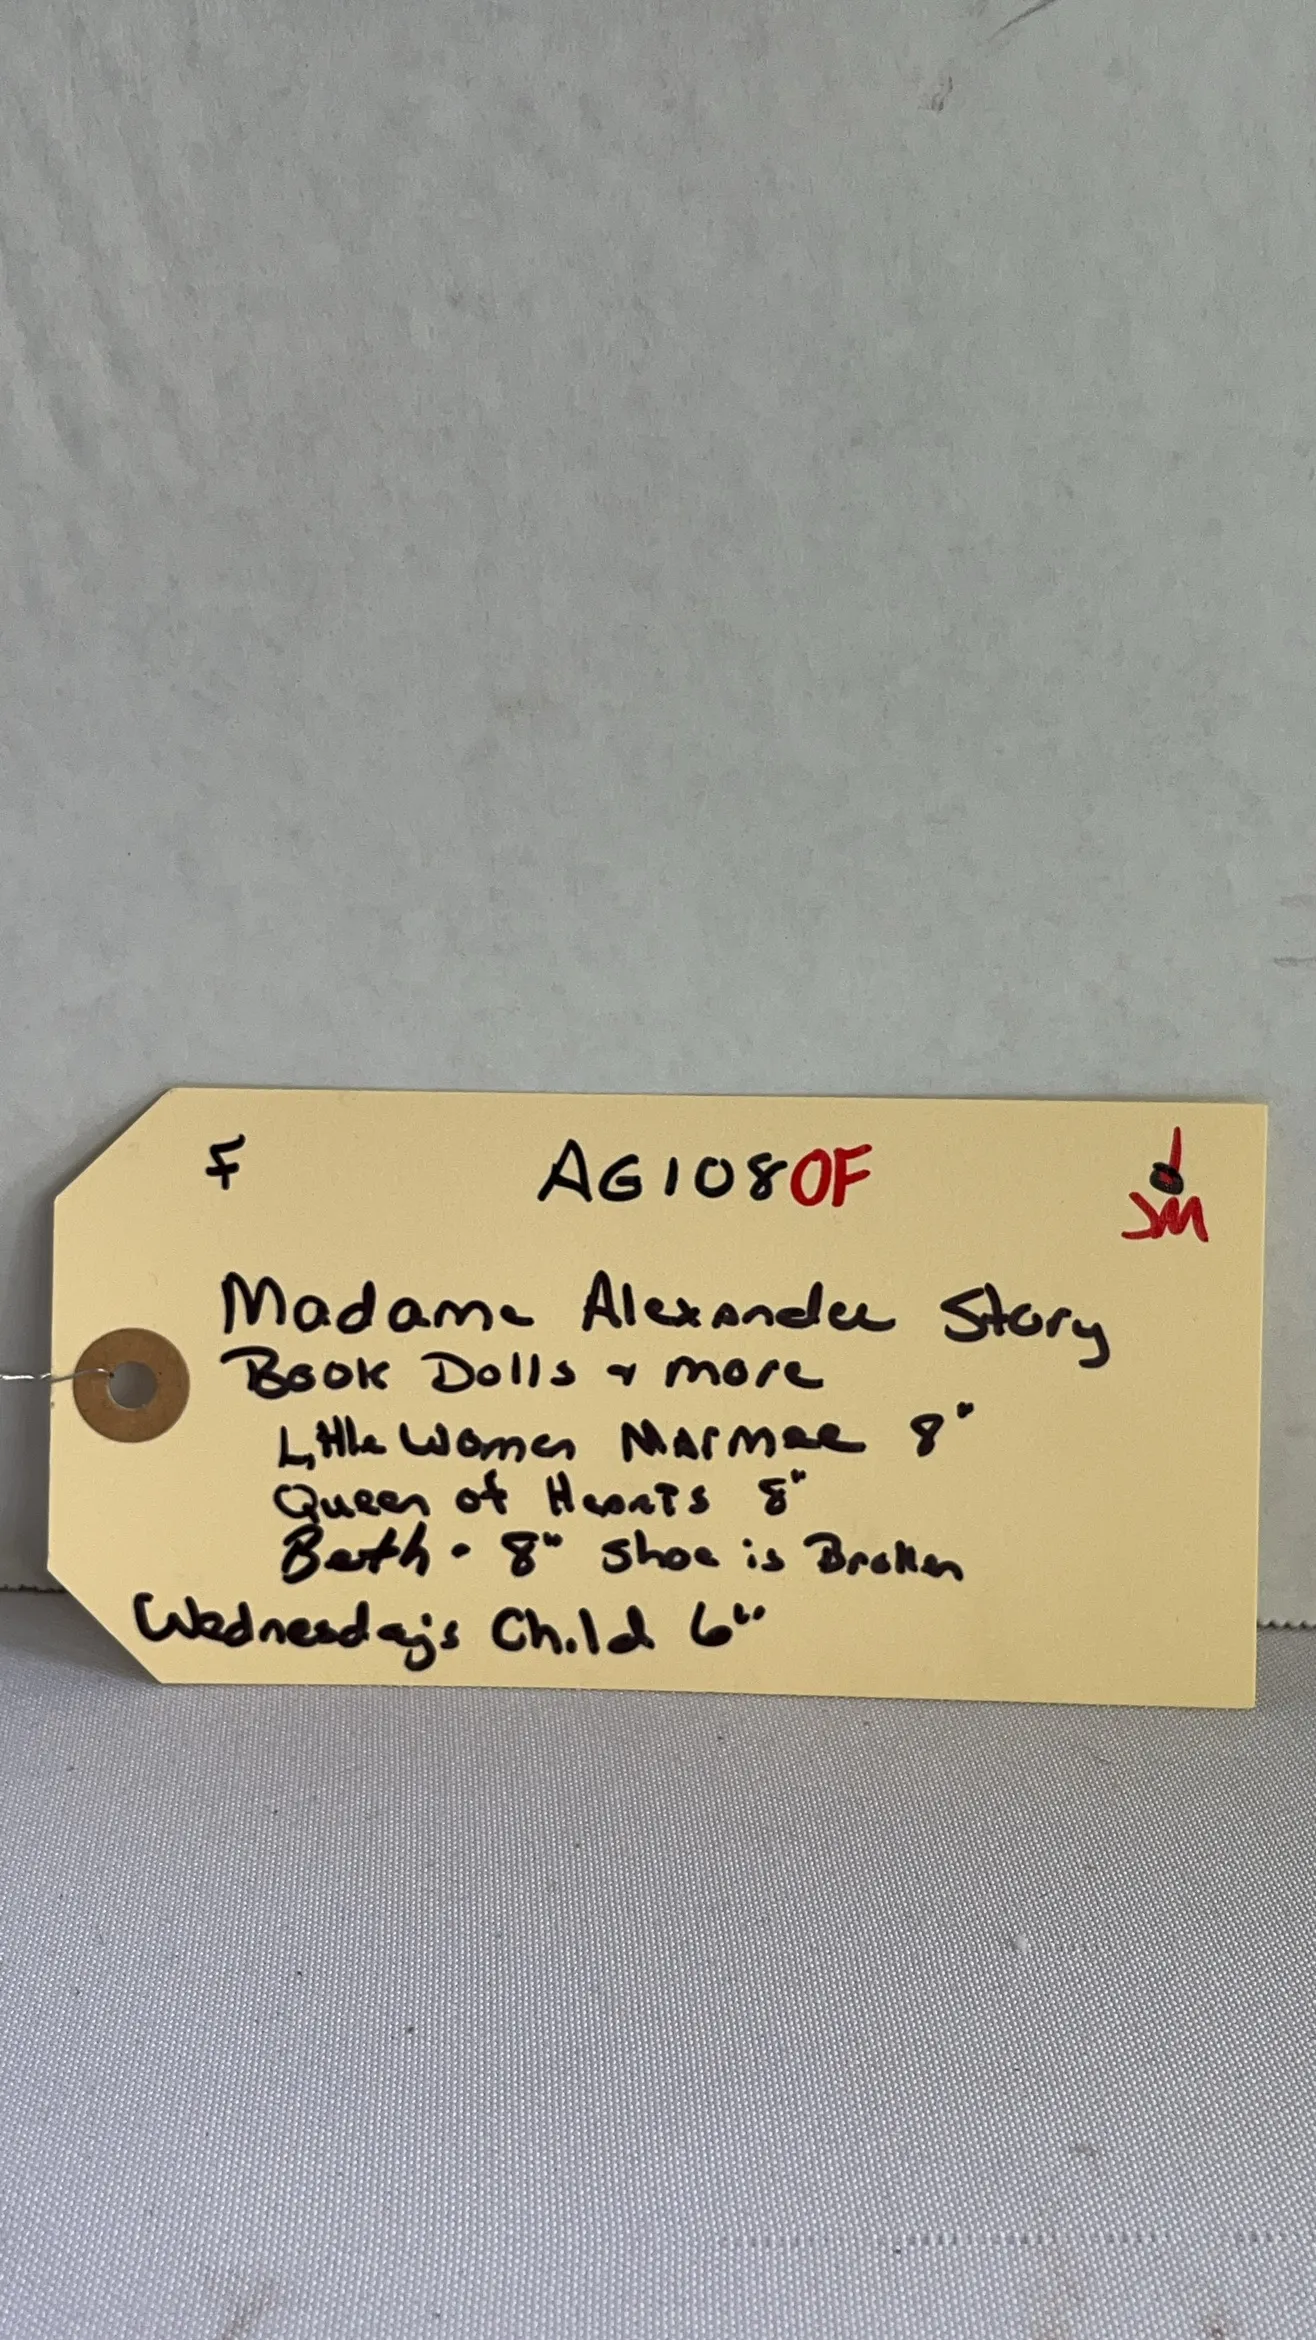 F AG1080F
JM
Madame Alexander Story
Book Dolls & more
Little Women Marmee 8"
Queen of Hearts 8"
Beth - 8" shoe is Broken
Wednesday's Child 6"